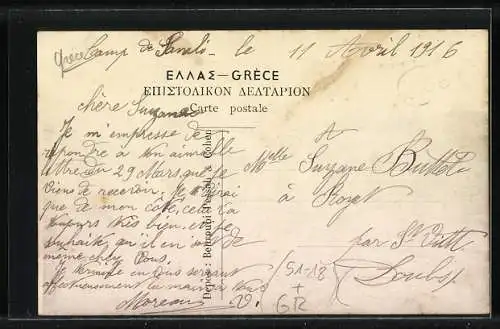 Grèce Camp de le 11 Avril 1916
ΕΛΛΑΣ—GRÈCE
ΕΠΙΣΤΟΛΙΚΟΝ ΔΕΛΤΑΡΙΟΝ
Carte postale
chère Suzanne
Je m'empresse de
repondre à ton aimable
lettre du 29 Mars, que je
viens de recevoir. Je
que de mon côté, cela va
toujours très bien, et je
souhaite qu'il en soit de
même chez Vous.
Je termine en Vous serrant
affectueusement la main à tous
Moreau
Cohen
à
Melle Suzane
à
par St
Doubs
51-18
+
GR